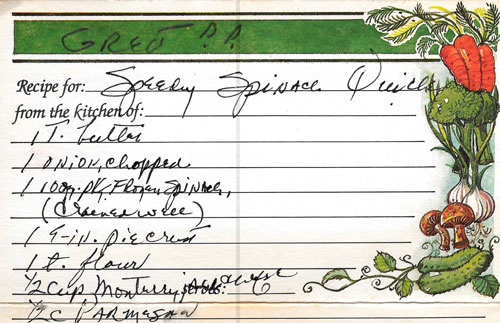 GREJ P.P.
Recipe for: Speedy Spinach Quiche
from the kitchen of:
1 T. butter
1 onion, chopped
1 10 oz. pk. Frozen Spinach,
(Drained well)
1 9-in. pie crust
1 t. flour
1/2 Cup Monterry Jack
1/2 c PARMESAN